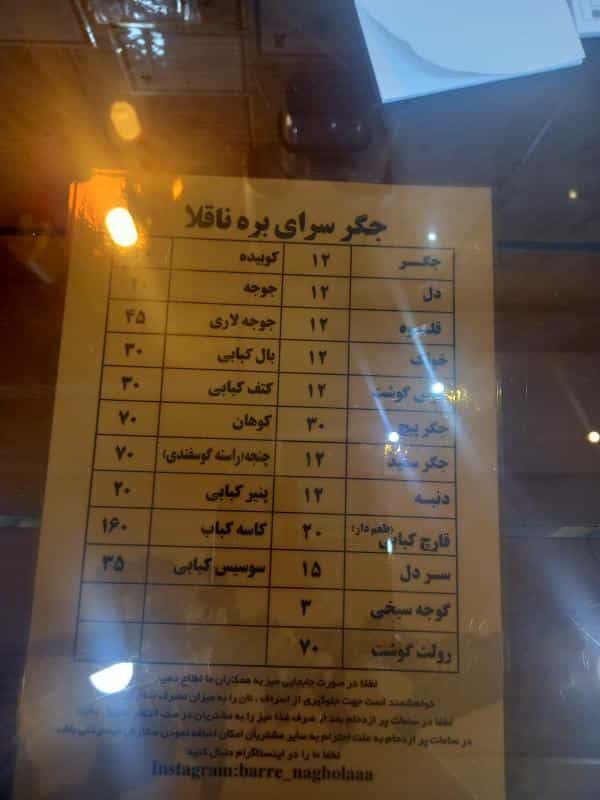 جگر سرای بره ناقلا
جگر ۱۲ کوبیده
دل ۱۲ جوجه
قلوه ۱۲ جوجه لاری ۴۵
۱۲ بال کبابی ۳۰
گوشت ۱۲ کتف کبابی ۳۰
جگر پیچ ۳۰ کوهان ۷۰
جگر سفید ۱۲ چنجه(راسته گوسفندی) ۷۰
دنبه ۱۲ پنیر کبابی ۲۰
قارچ کبابی (طعم دار) ۲۰ کاسه کباب ۱۶۰
سر دل ۱۵ سوسیس کبابی ۳۵
گوجه سیخی ۳
رولت گوشت ۷۰
لطفا در صورت جابجایی میز به همکاران ما اطلاع دهید
خواهشمند است جهت جلوگیری از اسراف ، نان را به میزان مصرف
لطفا در ساعات پر ازدحام بعد از صرف غذا میز را به مشتریان در صف انتظار
در ساعات پر ازدحام به علت احترام به سایر مشتریان امکان اضافه نمودن سفارش
لطفا ما را در اینستاگرام دنبال کنید
Instagram:barre_nagholaaa